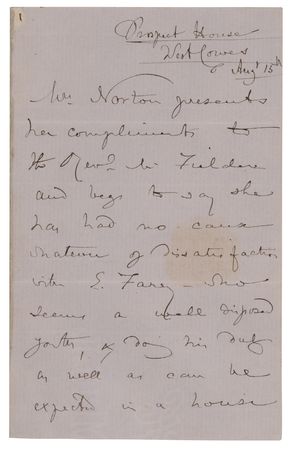 1
Prospect House
West Cowes
Augt 15th
Mrs Norton presents
her compliments to
the Revd Mr Fielden
and begs to say she
has had no cause
whatever of dissatisfaction
with E. Farey who
seems a well disposed
& doing his duty
as well as can be
expected in a house